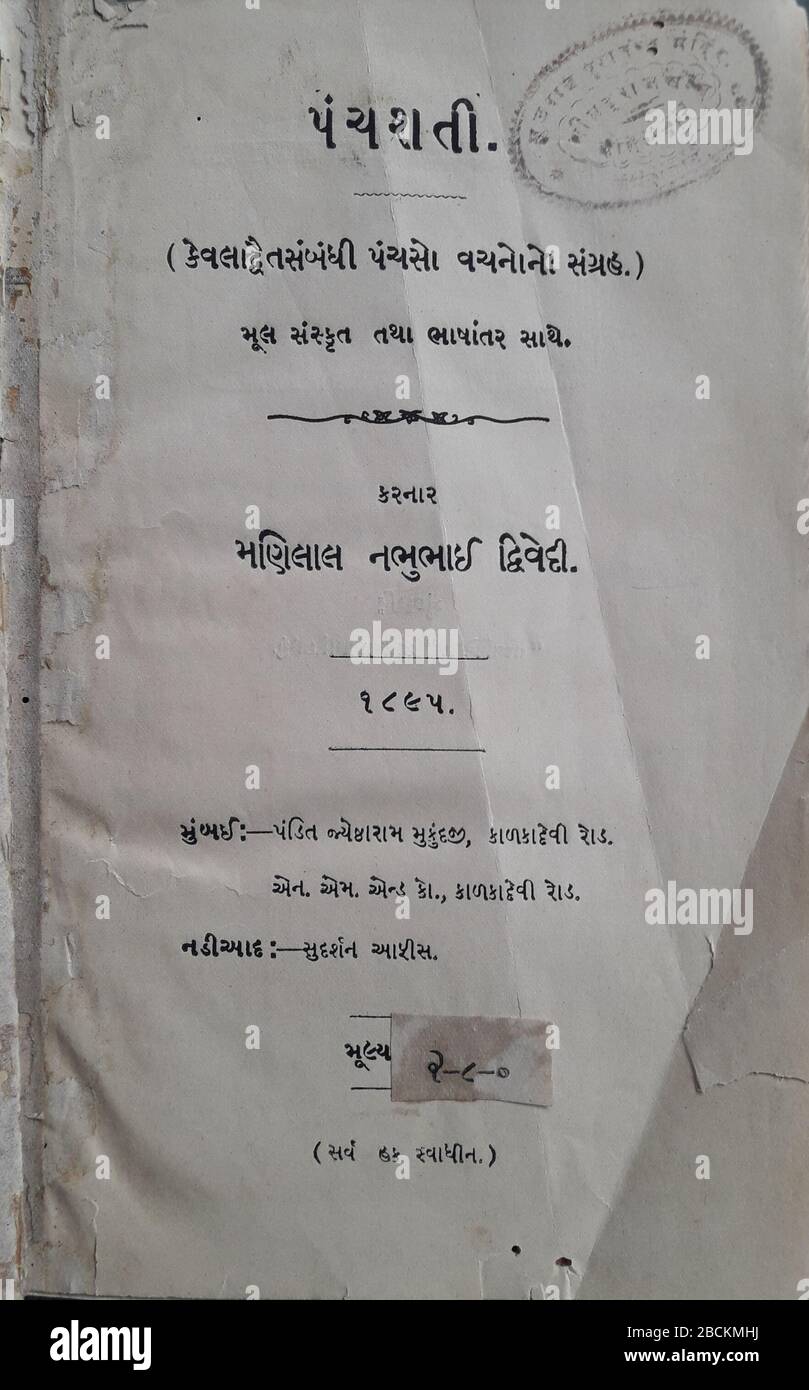 પંચશતી.
(કેવલાદ્વૈતસંબંધી પંચસો વચનોનો સંગ્રહ.)
મૂલ સંસ્કૃત તથા ભાષાંતર સાથે.
કરનાર
મણિલાલ નભુભાઈ દ્વિવેદી.
૧૮૯૫.
મુંબઈઃ—પંડિત જ્યેષ્ઠારામ મુકુંદજી, કાળકાદેવી રોડ.
એન. એમ. એન્ડ કો., કાળકાદેવી રોડ.
નડીઆદઃ—સુદર્શન આફીસ.
મૂલ્ય ૨-૮-૦
(સર્વ હક સ્વાધીન.)
alamy
alamy
alamy
a alamy
Image ID: 2BCKMHJ
www.alamy.com